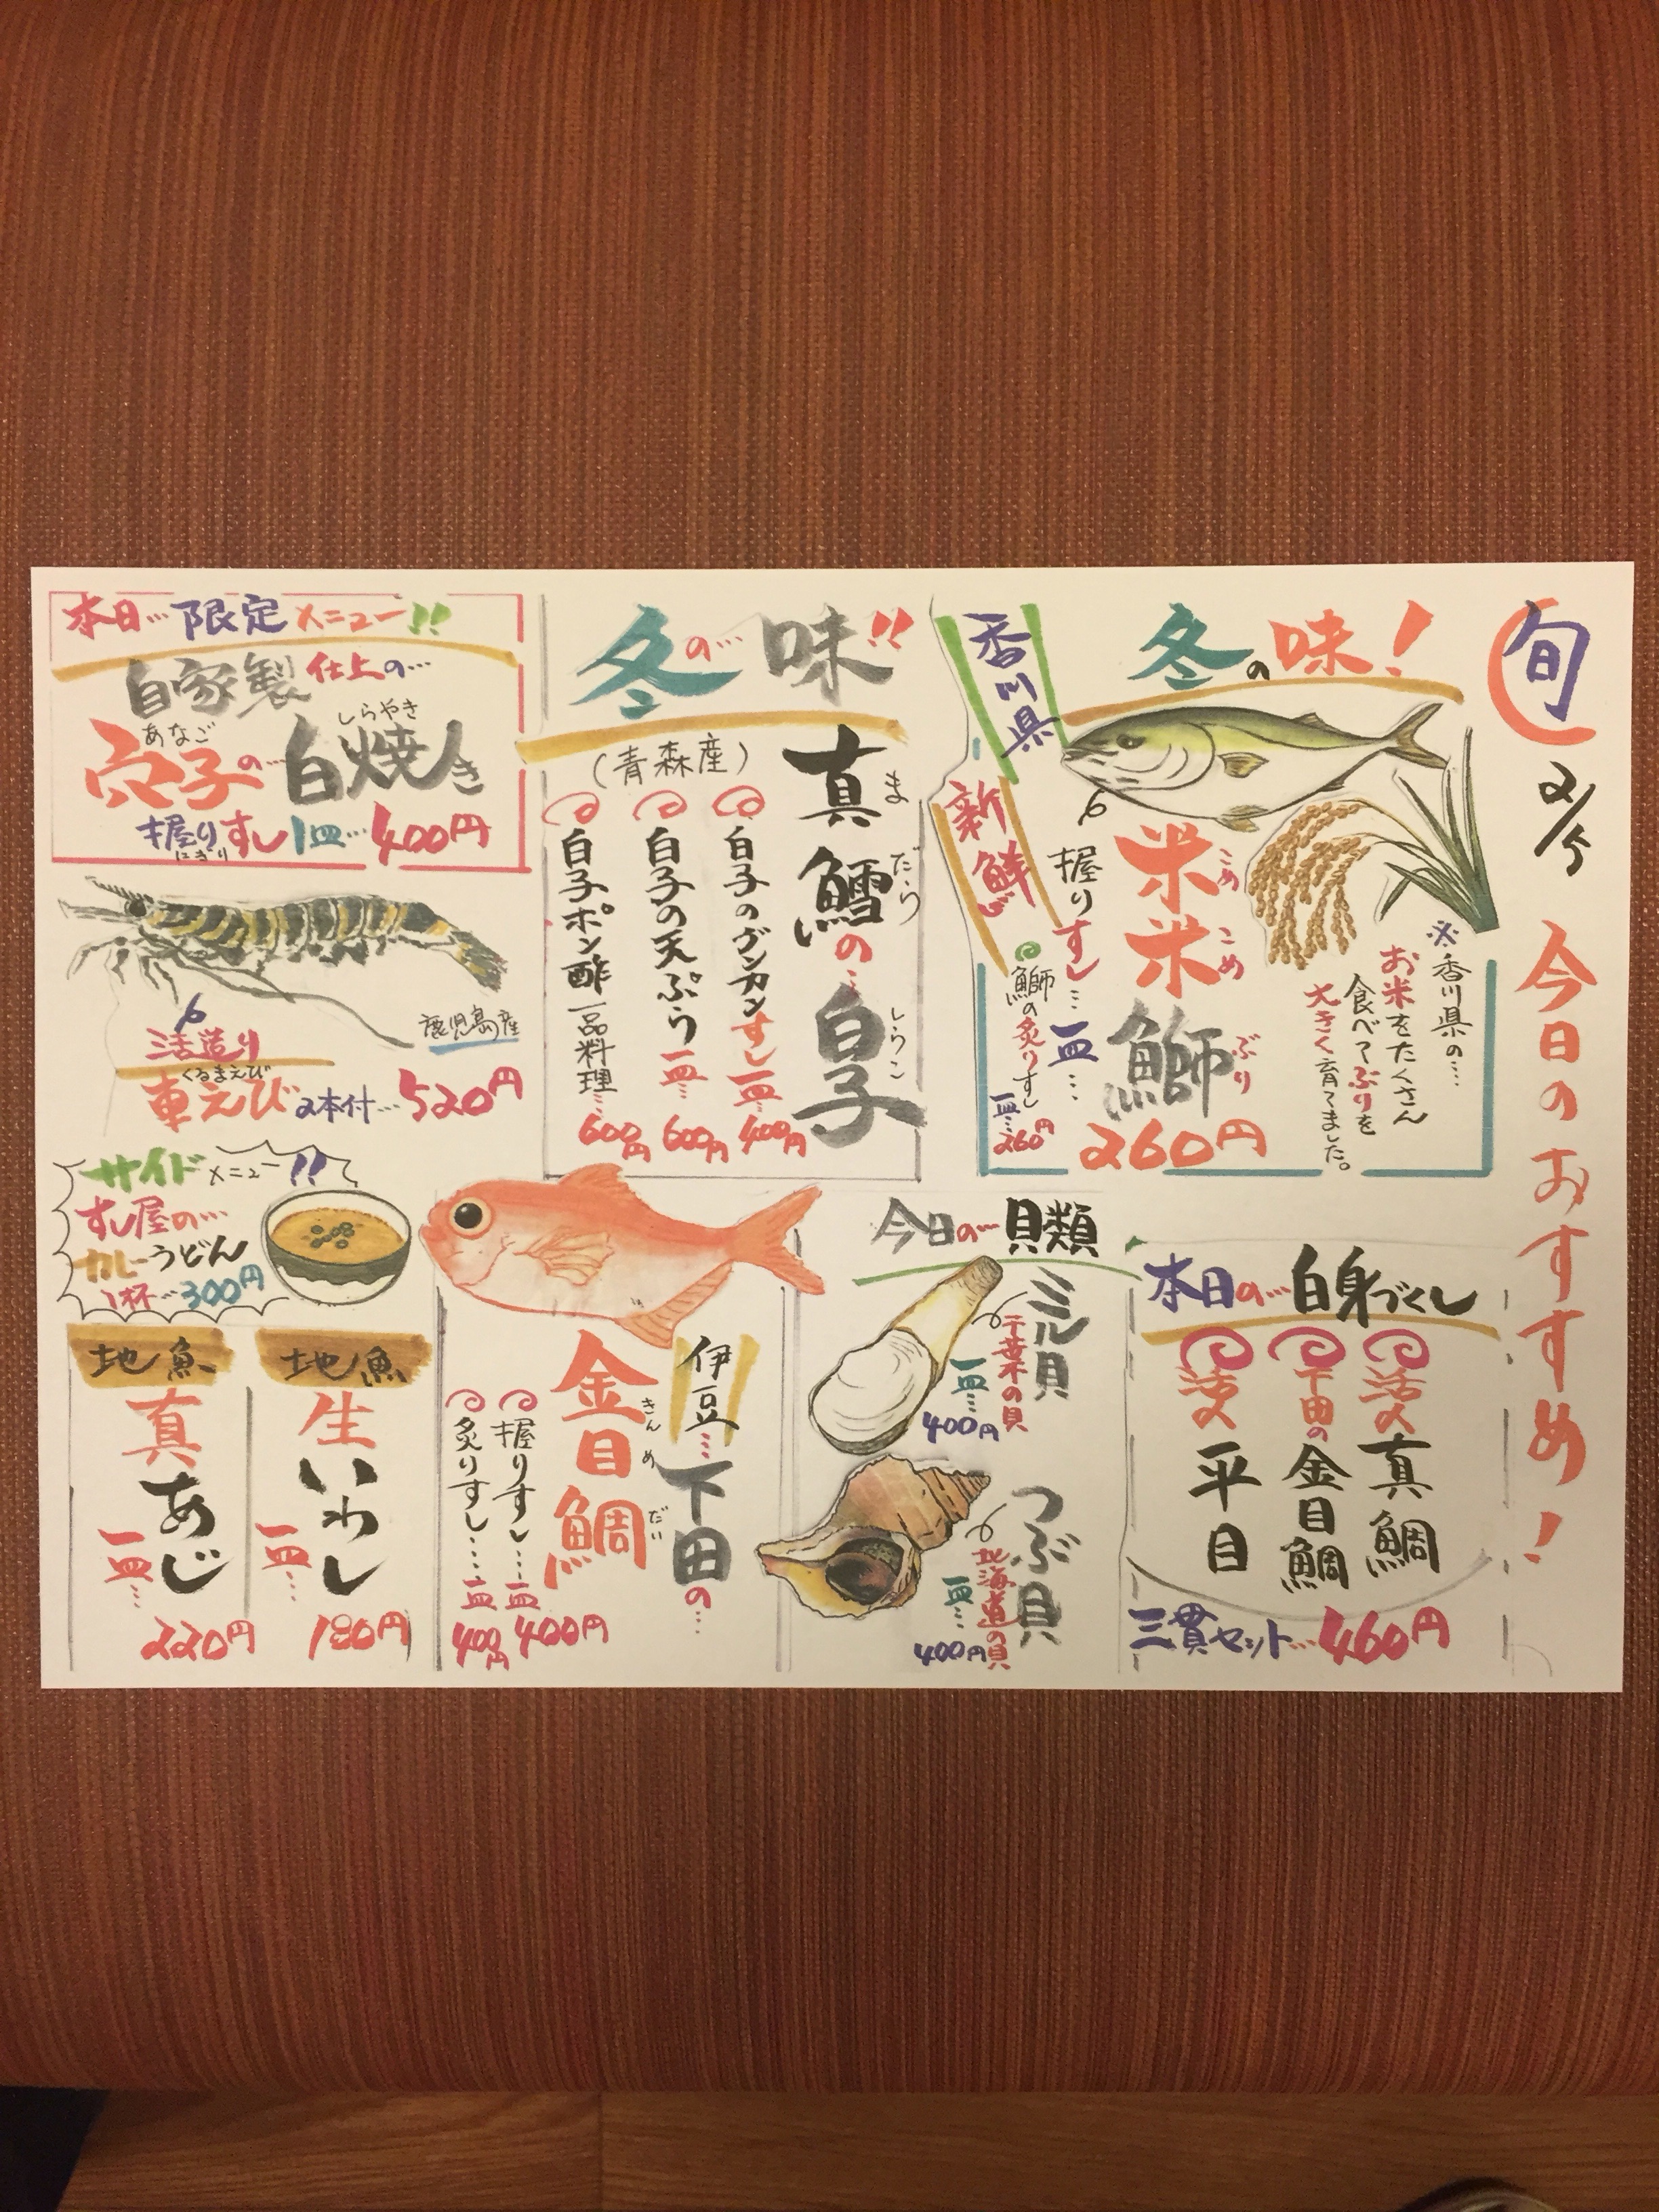 旬
2/5
今日のおすすめ!
冬の味!
香川県
新鮮
米米鰤
こめこめぶり
握りすし…一皿…
260円
鰤の炙りすし
一皿…260円
※香川県の…
お米をたくさん
食べてぶりを
大きく育てました。
冬の…味!!
真鱈の…白子
まだらしらこ
(青森産)
白子のグンカンすし一皿…400円
白子の天ぷら一皿…600円
白子ポン酢一品料理…600円
本日…限定メニュー!!
自家製仕上の…
穴子の…白焼き
あなご
しらやき
握りすし1皿…400円
にぎり
鹿児島産
活造り
くるまえび
車えび2本付…520円
本日の…白身づくし
活〆真鯛
下田の金目鯛
活〆平目
三貫セット…460円
今日の…貝類
ミル貝
千葉の貝
一皿…
400円
つぶ貝
北海道の貝
一皿…
400円
伊豆…下田の…
金目鯛
きんめだい
握りすし…一皿400円
炙りすし…一皿400円
サイドメニュー!!
すし屋の…
カレーうどん
1杯…300円
地魚
生いわし
一皿…
180円
地魚
真あじ
一皿…
220円